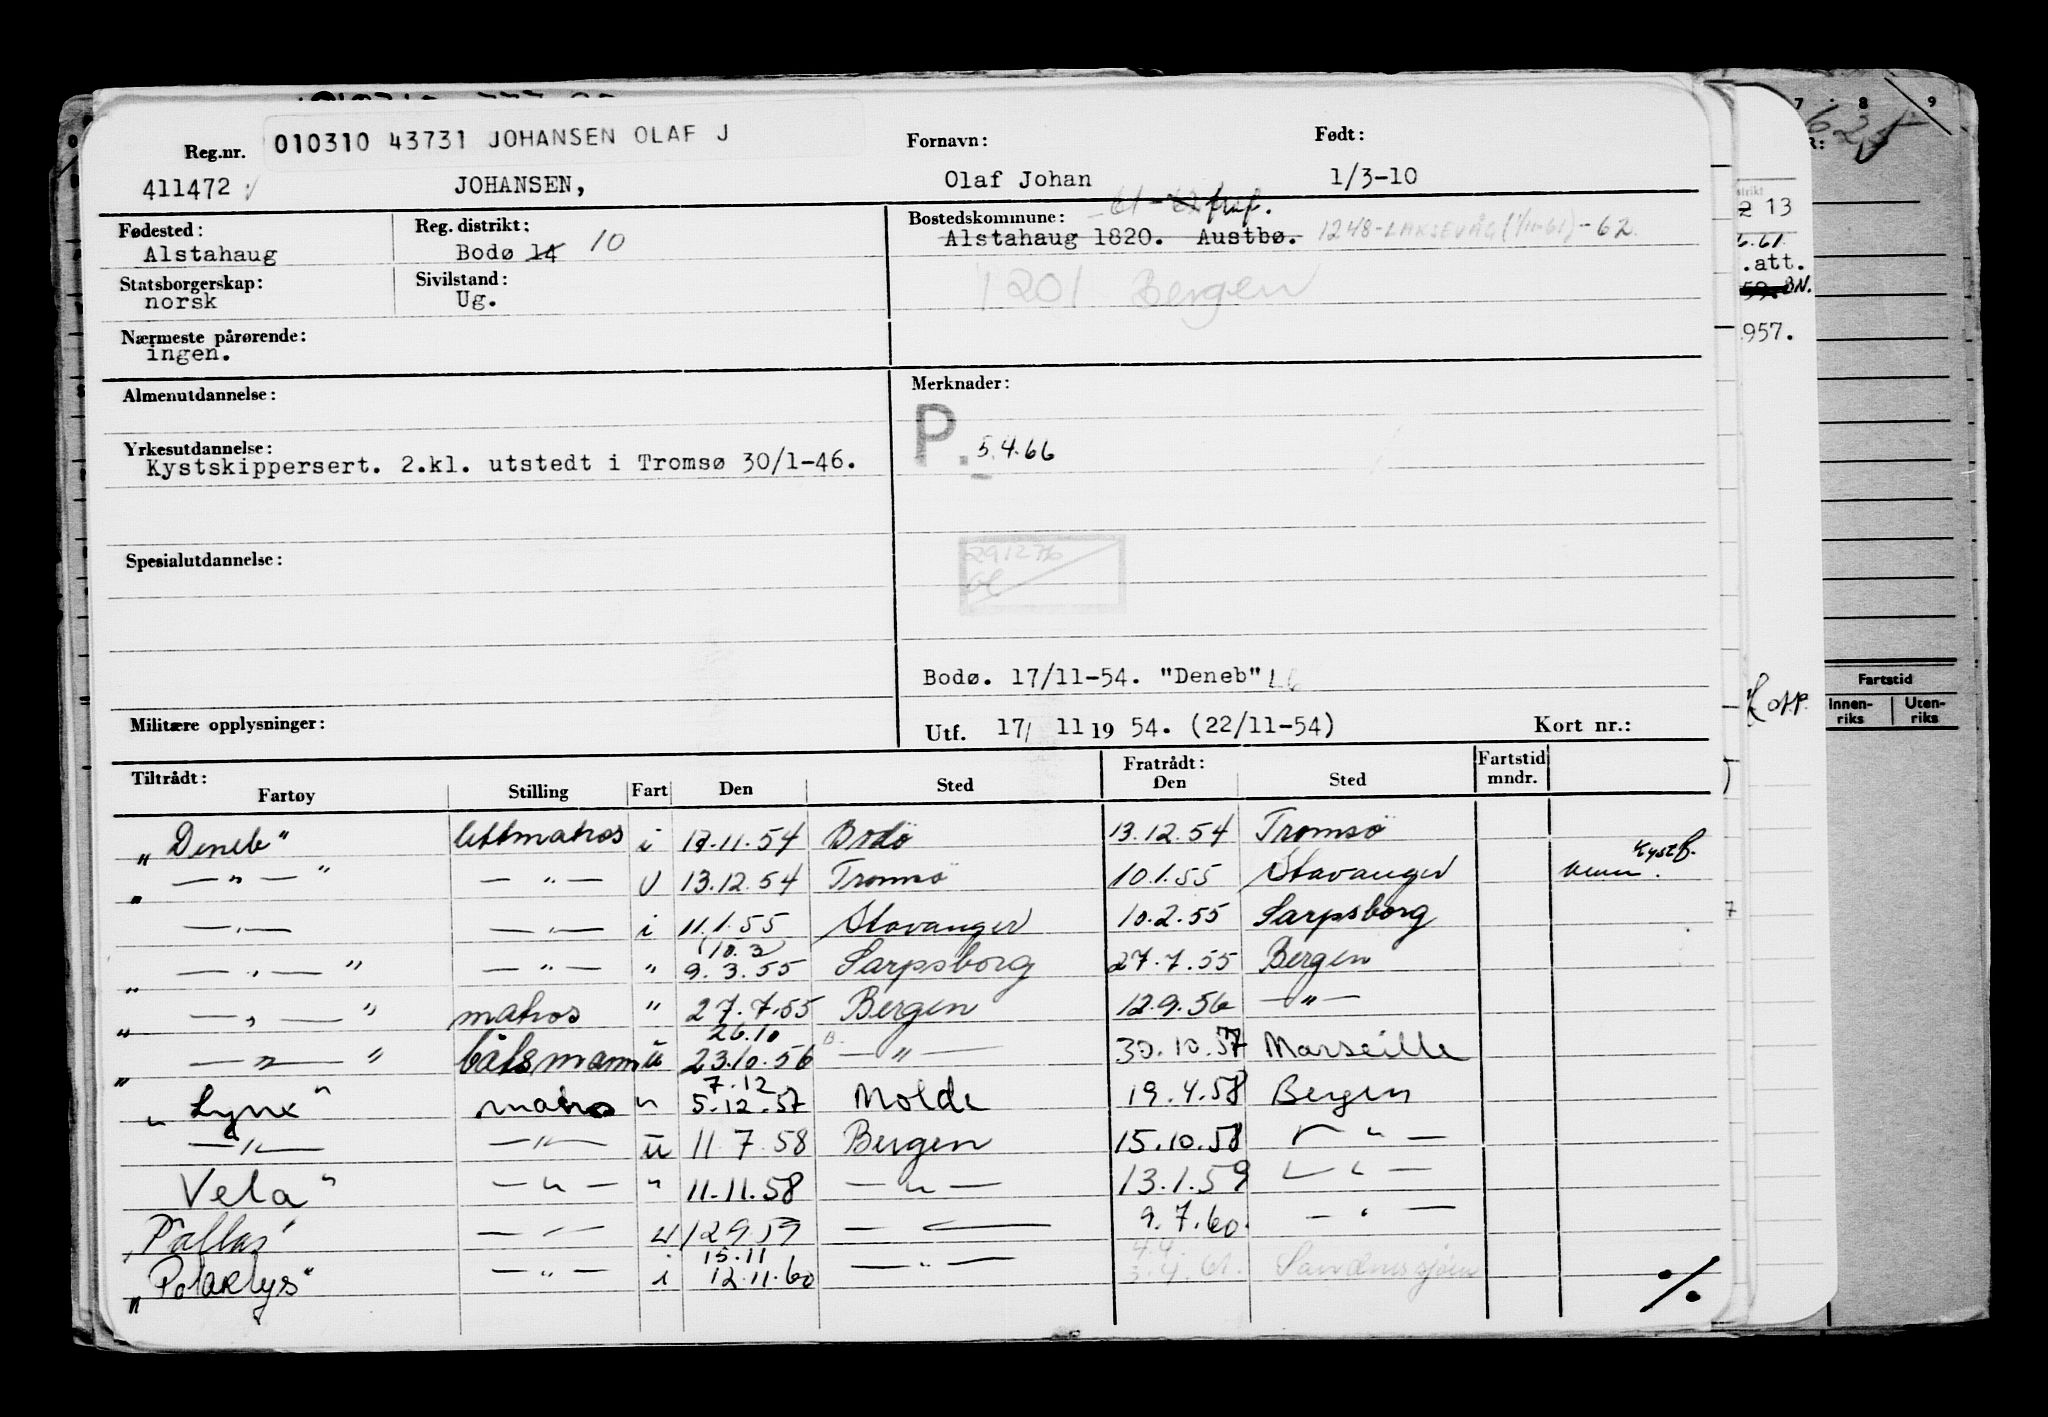 7 8 9
010310 43731 JOHANSEN OLAF J
Reg.nr. Fornavn: Født:
411472 JOHANSEN, Olaf Johan 1/3-10
Fødested: Reg. distrikt: Bostedskommune:
Alstahaug Bodø 14 10 Alstahaug 1820. Austbø. 1248-LAKSEVÅG (1/11-61)-62
Statsborgerskap: Sivilstand: 1201 Bergen
norsk Ug.
Nærmeste pårørende:
ingen.
Almenutdannelse: Merknader:
P. 5.4.66
Yrkesutdannelse:
Kystskippersert. 2.kl. utstedt i Tromsø 30/1-46.
291276
Spesialutdannelse:
Bodø. 17/11-54. "Deneb"
Militære opplysninger: Utf. 17/ 11 19 54. (22/11-54) Kort nr.:
Tiltrådt: Fratrådt: Fartstid
Fartøy Stilling Fart Den Sted Den Sted mndr.
"Deneb" lettmatros i 17.11.54 Bodö 13.12.54 Tromsö
" — " — " — " — U 13.12.54 Tromsö 10.1.55 Stavanger Kystf.
— " — — " — i 11.1.55 Stavanger 10.2.55 Sarpsborg
10.3
" — " — " — " — " 9.3.55 Sarpsborg 27.7.55 Bergen
" — " — " matros " 27.7.55 Bergen 12.9.56 — " —
26.10
" — " — " båtsmann u 23.10.56 — " — 30.10.57 Marseille
7.12
"Lynx" matros " 5.12.57 Molde 19.4.58 Bergen
— " — — " — u 11.7.58 Bergen 15.10.58 — " —
Vela" — " — " 11.11.58 — " — 13.1.59 — " —
"Pallas" — " — u 12959 — " — 9.7.60. — " —
15.11 4.4
"Polarlys" — " — i 12.11.60 — " — 3.4.61. Sandnessjøen
./.
13
6.61
.att.
BN.
957.
Fartstid
Innen-riks Uten-riks